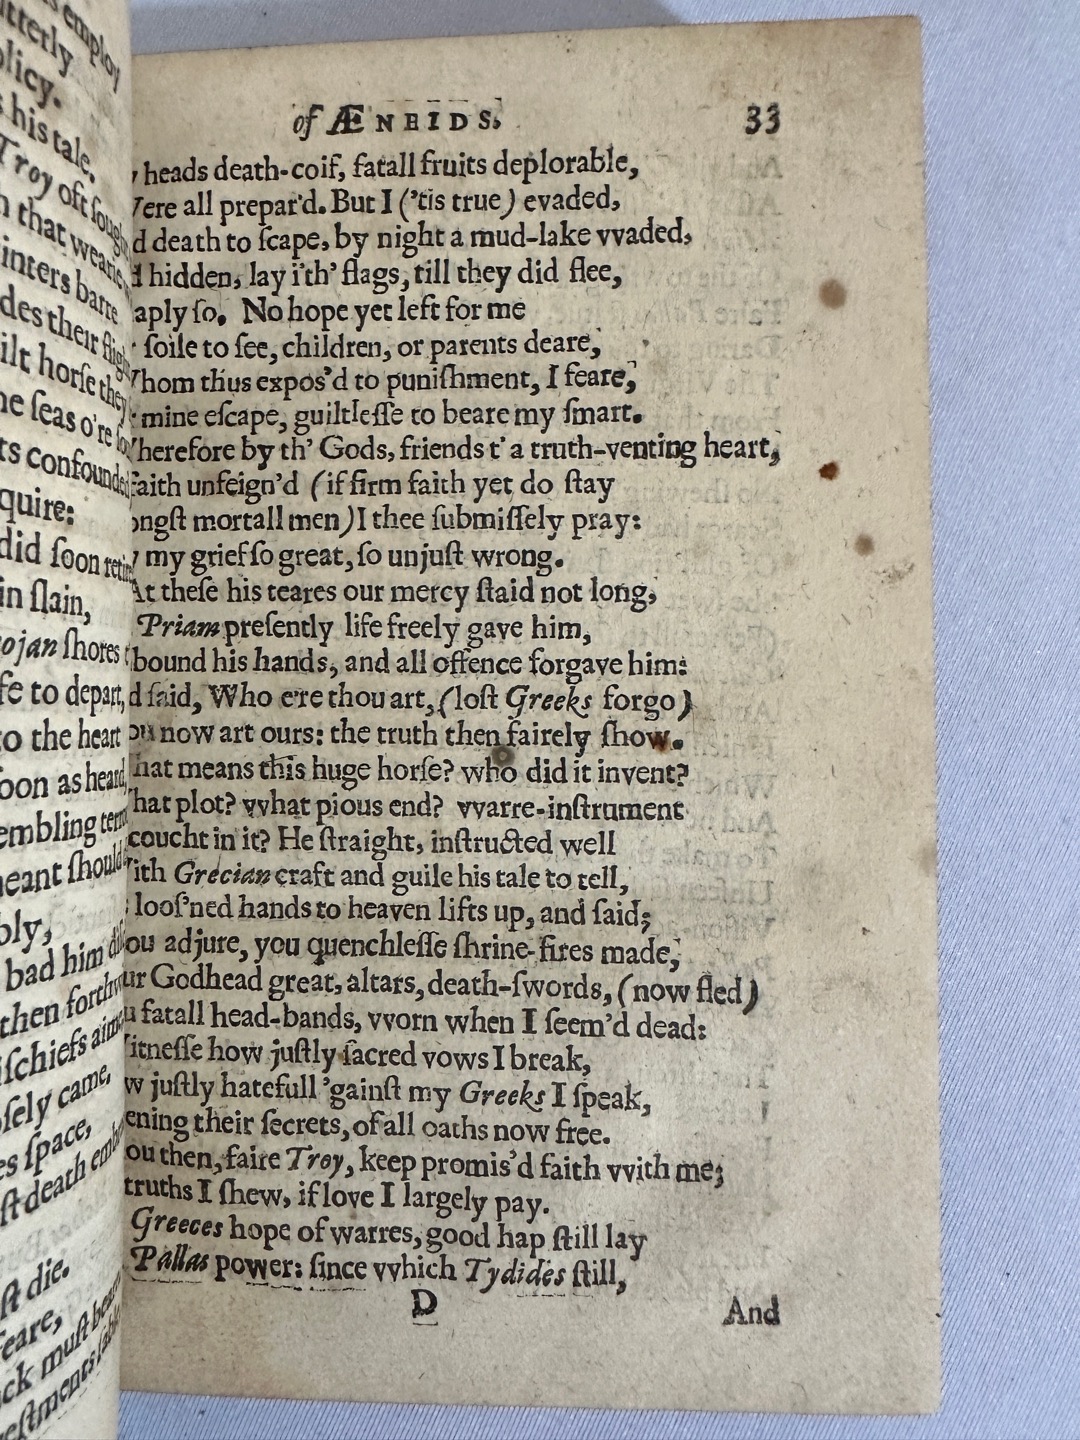 s employ
utterly
olicy.
s his tale.
Troy oft sough
n that wearie
inters barre
des their fligh
ilt horse they
he seas o're
ts confounded
quire:
did soon retir
in slain,
ojan shores
fe to depart,
to the heart
oon as heard,
embling
eant should
bly,
bad him
then forthw
ischiefs aim
osely came,
es space,
st death emb
st die.
feare,
ck must beare
estments
of ÆNEIDS. 33
y heads death-coif, fatall fruits deplorable,
Vere all prepar'd. But I ('tis true) evaded,
d death to ſcape, by night a mud-lake vvaded,
d hidden, lay i'th' flags, till they did flee,
aply ſo. No hope yet left for me
ſoile to ſee, children, or parents deare,
Vhom thus expos'd to puniſhment, I feare,
mine eſcape, guiltleſſe to beare my ſmart.
Vherefore by th' Gods, friends t' a truth-venting heart,
faith unfeign'd (if firm faith yet do ſtay
ongſt mortall men) I thee ſubmiſſely pray:
y my grief ſo great, ſo unjuſt wrong.
At theſe his teares our mercy ſtaid not long,
Priam preſently life freely gave him,
bound his hands, and all offence forgave him:
d ſaid, Who e're thou art, (loſt Greeks forgo)
ou now art ours: the truth then fairely ſhow.
hat means this huge horſe? who did it invent?
hat plot? vvhat pious end? vvarre-inſtrument
coucht in it? He ſtraight, inſtructed well
ith Grecian craft and guile his tale to tell,
looſ'ned hands to heaven lifts up, and ſaid;
ou adjure, you quenchleſſe ſhrine-fires made,
ur Godhead great, altars, death-ſwords, (now fled)
u fatall head-bands, vvorn when I ſeem'd dead:
itneſſe how juſtly ſacred vows I break,
w juſtly hatefull 'gainſt my Greeks I ſpeak,
ening their ſecrets, of all oaths now free.
ou then, faire Troy, keep promis'd faith vvith me;
truths I ſhew, if love I largely pay.
Greeces hope of warres, good hap ſtill lay
Pallas power: ſince vvhich Tydides ſtill,
D And